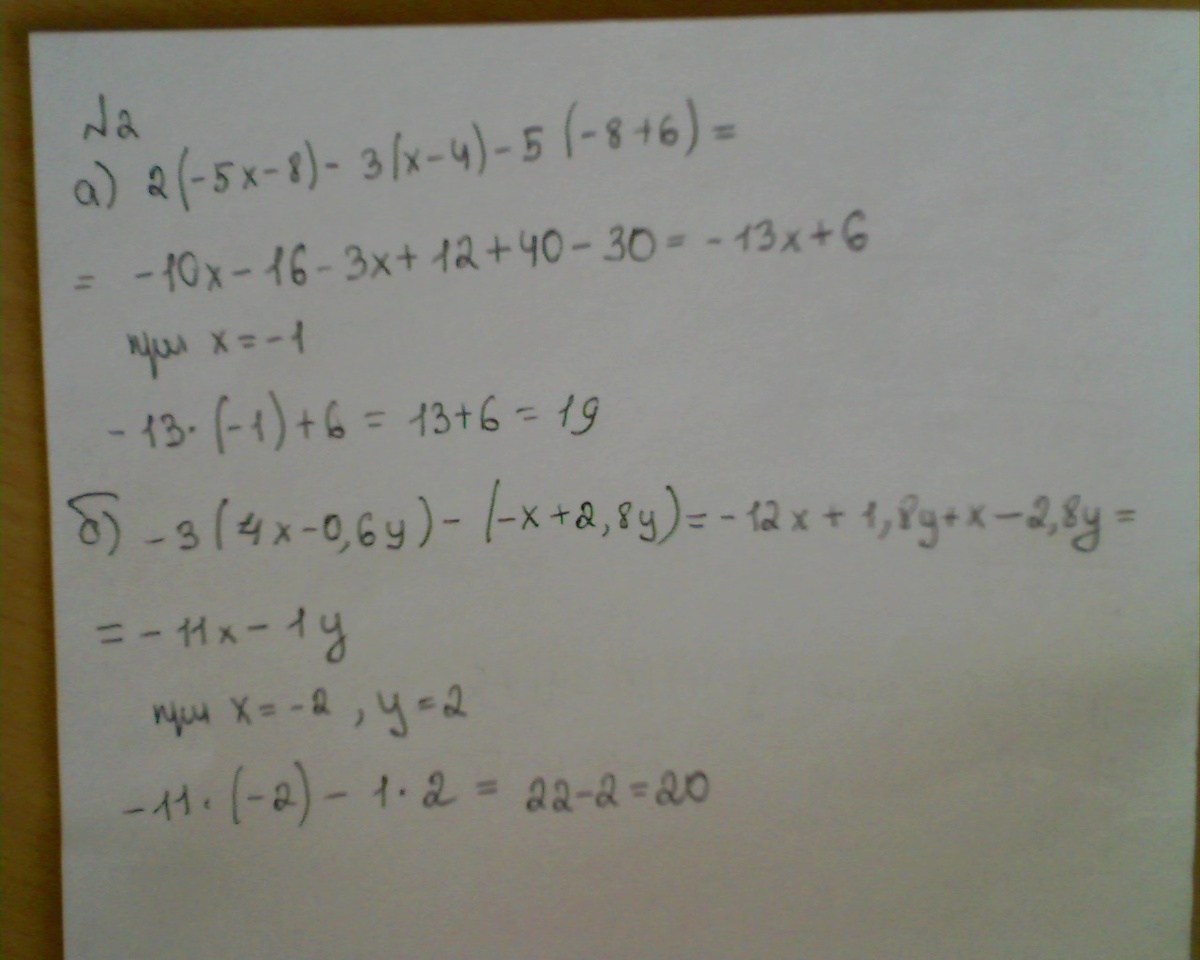 №2
а) 2(-5x-8)- 3(x-4)-5 (-8+6)=
= -10x-16-3x+12+40-30=-13x+6
при x=-1
-13·(-1)+6 = 13+6 = 19
б) -3(4x-0,6y)- (-x+2,8y)=-12x+1,8y+x-2,8y=
=-11x-1y
при x=-2, y=2
-11·(-2)-1·2 = 22-2=20